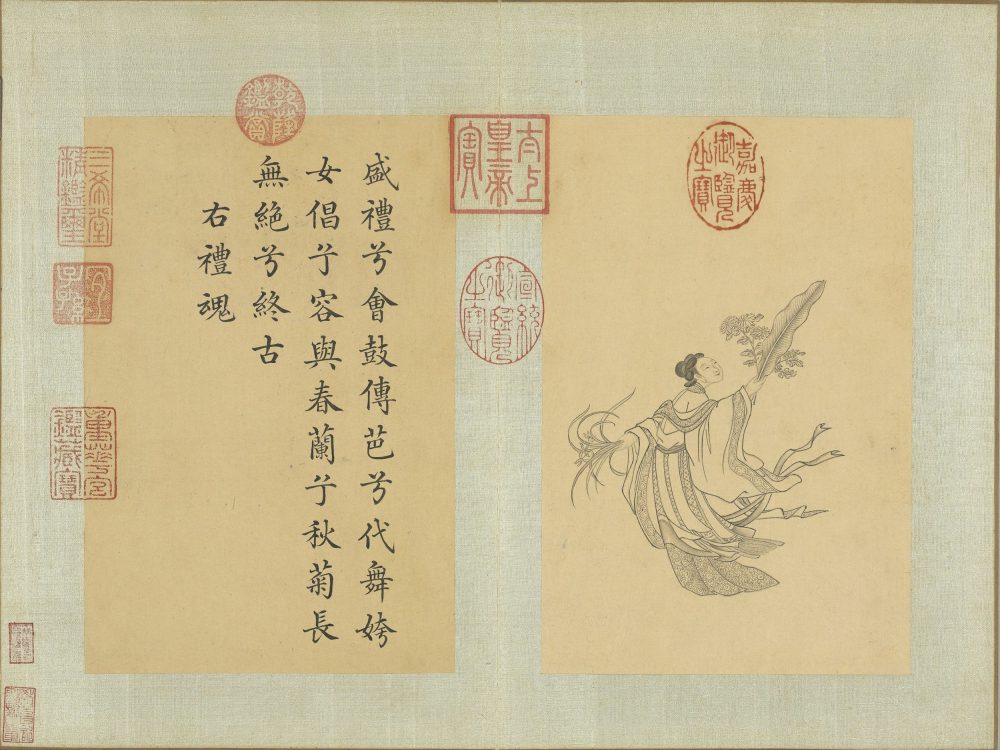 嘉慶御覽之寶
太上皇帝之寶
宣統御覽之寶
盛禮兮會鼓傳芭兮代舞姱
女倡兮容與春蘭兮秋菊長
無絶兮終古
右禮魂
乾隆鑑賞
三希堂精鑑璽
宜子孫
重華宮鑑藏寶